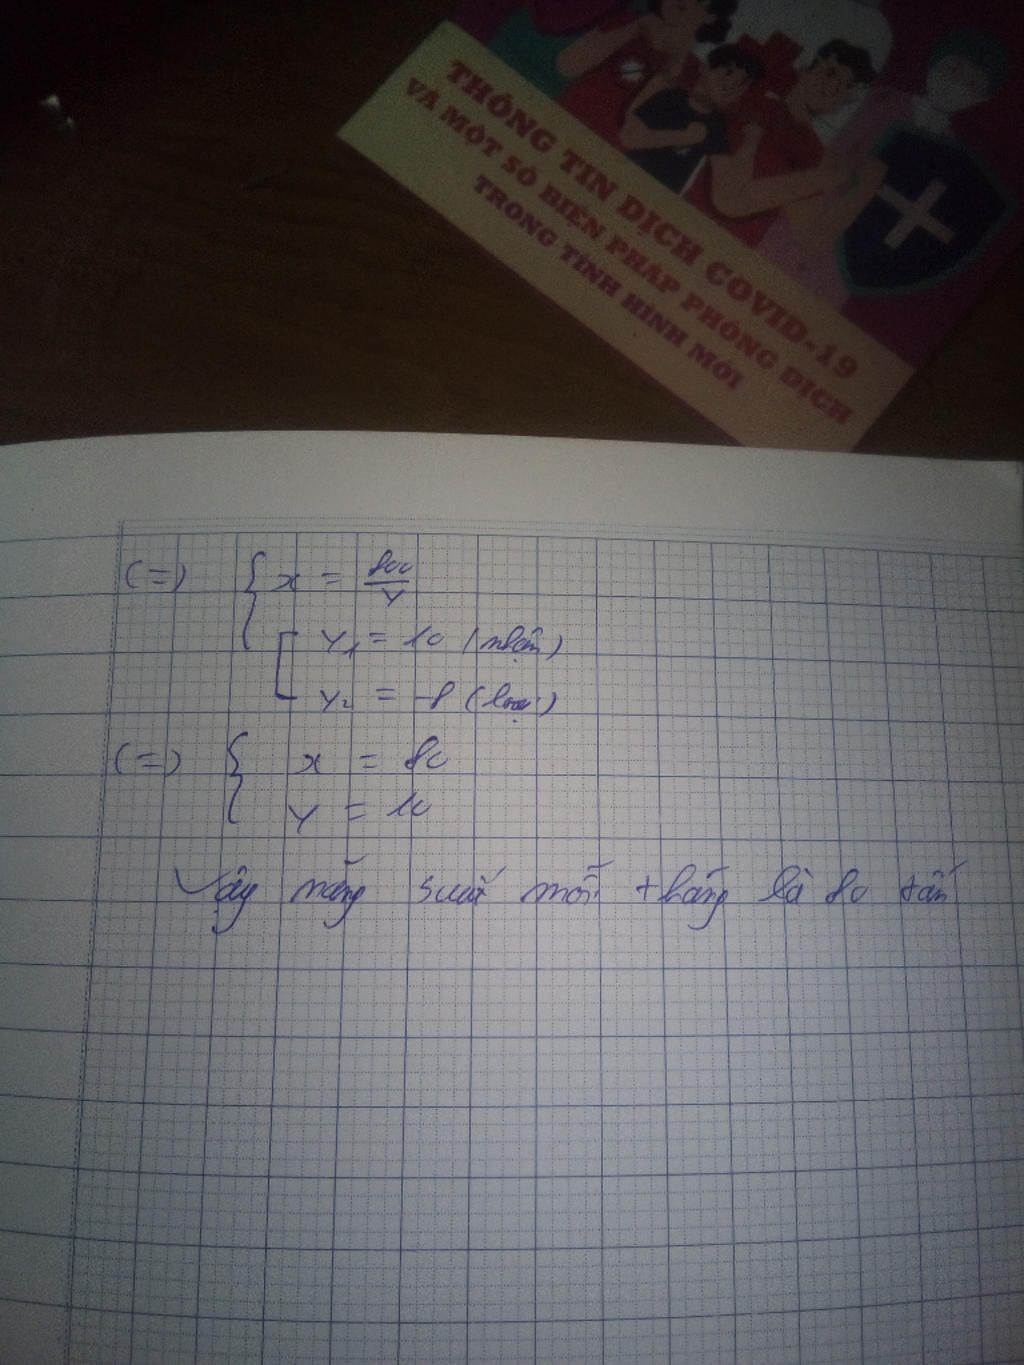 THÔNG TIN DỊCH COVID-19
VÀ MỘT SỐ BIỆN PHÁP PHÒNG DỊCH
TRONG TÌNH HÌNH MỚI
(=) { x = 800/Y
[ Y₁ = 10 (nhận)
Y₂ = -8 (loại)
(=) { x = 80
Y = 10
Vậy năng suất mỗi tháng là 80 tấn